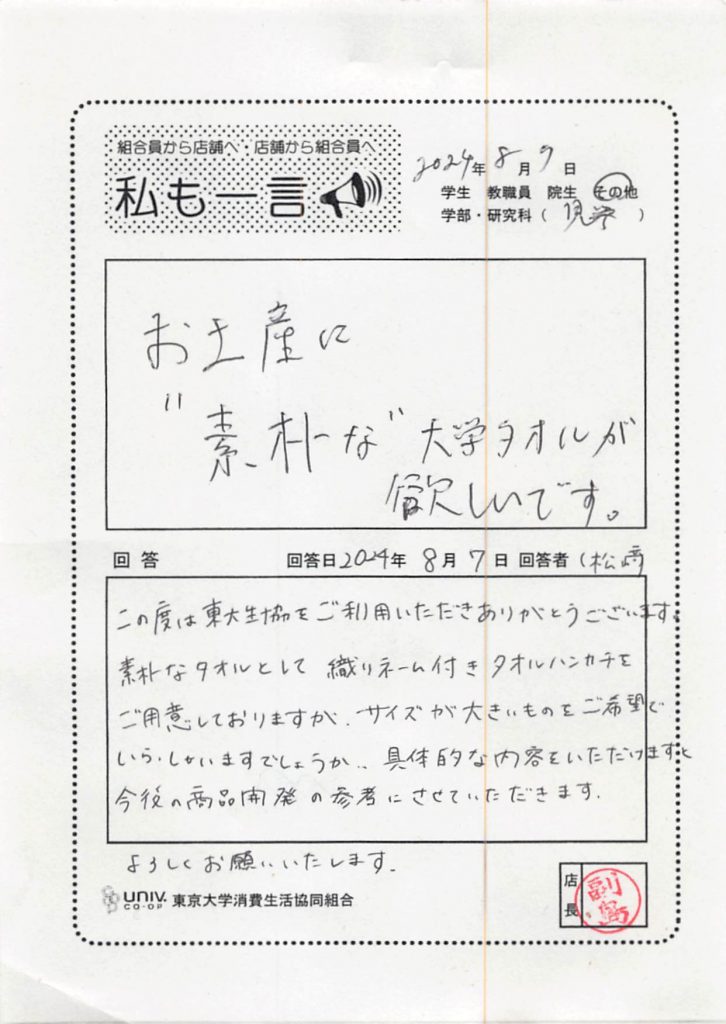 組合員から店舗へ・店舗から組合員へ
私も一言
2024年 8月 9日
学生 教職員 院生 その他
学部・研究科( 見学 )
お土産に
"素朴な"大学タオルが
欲しいです。
回答 回答日2024年 8月 7日 回答者(松﨑
この度は東大生協をご利用いただきありがとうございます。
素朴なタオルとして 織りネーム付きタオルハンカチを
ご用意しておりますが、サイズが大きいものをご希望で
いらっしゃいますでしょうか、具体的な内容をいただけますと
今後の商品開発の参考にさせていただきます.
よろしくお願いいたします.
UNIV. CO-OP 東京大学消費生活協同組合
店長